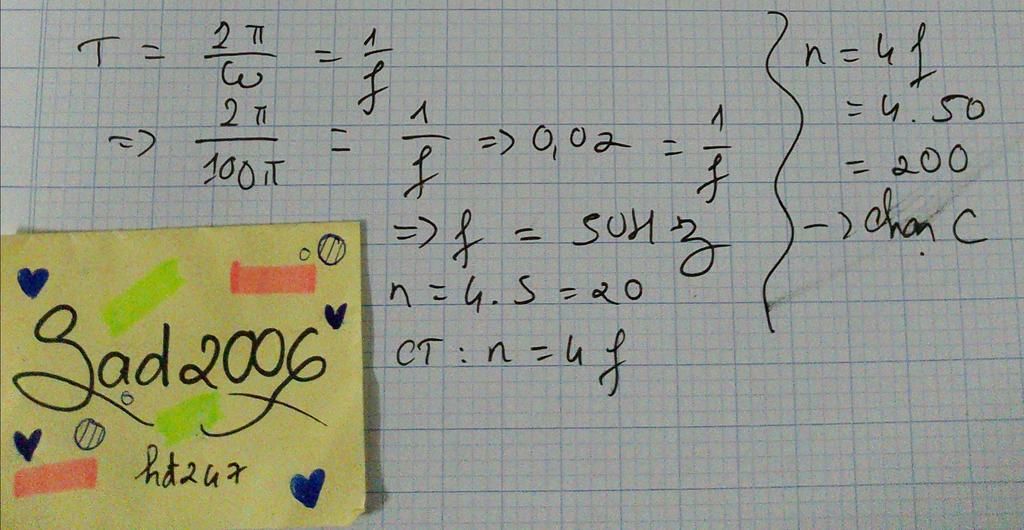 T = 2π/ω = 1/f
=> 2π/100π = 1/f => 0,02 = 1/f
=> f = 50Hz
n = 4.5 = 20
CT: n = 4f
n = 4f
= 4.50
= 200
-> chọn C
Sad2006
hd247